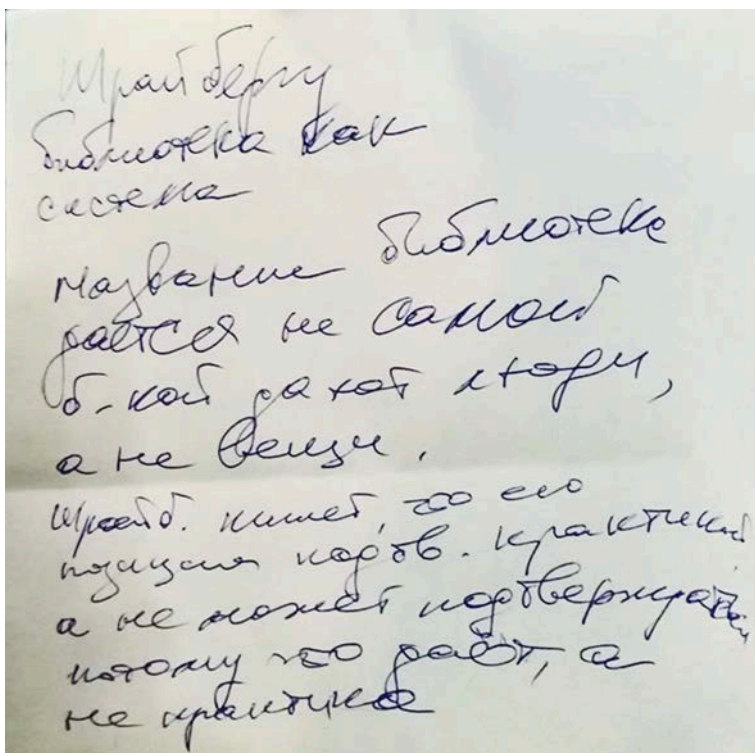 Шрайбергу
библиотека как
система
Название библиотеке
даётся не самой
б-кой дают люди,
а не вещи.
Шрайб. пишет, что его
позиция подтв. практикой
а не может подтверждаться
потому что даёт, а
не практика